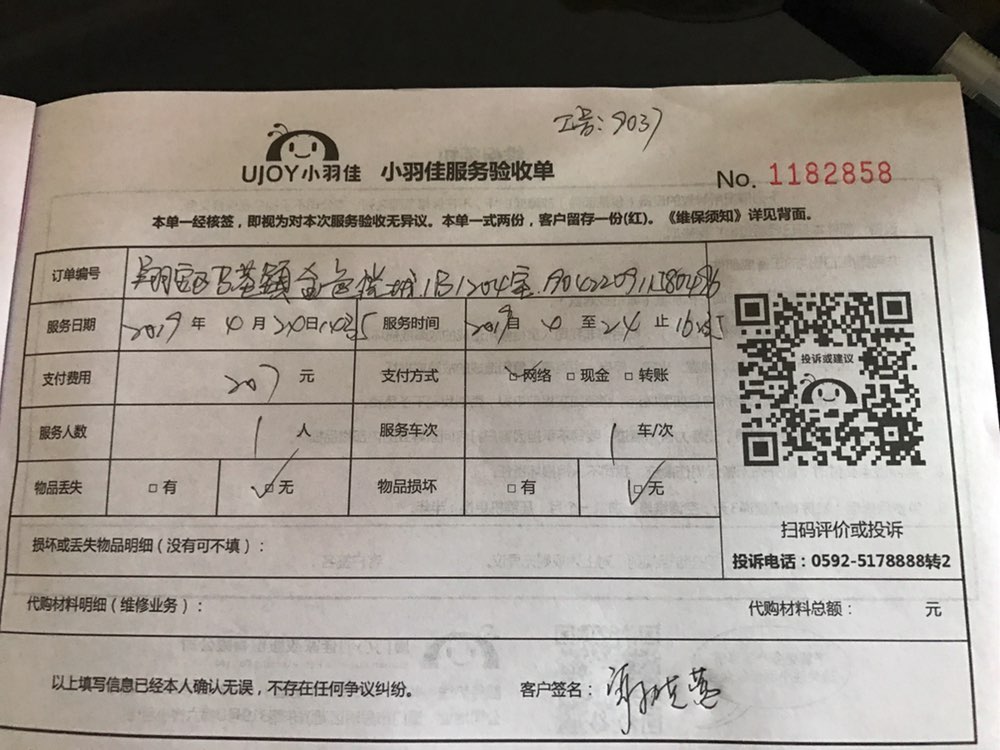 工号:9037
UJOY小羽佳 小羽佳服务验收单
No. 1182858
本单一经核签，即视为对本次服务验收无异议。本单一式两份，客户留存一份(红)。《维保须知》详见背面。
订单编号 翔安区马巷镇 1204室
服务日期 2019年 4月 24日 服务时间 2019自 4 至 24 止
支付费用 207 元 支付方式 网络 现金 转账
服务人数 1 人 服务车次 1 车/次
物品丢失 有 无 物品损坏 有 无
损坏或丢失物品明细（没有可不填）：
代购材料明细（维修业务）： 代购材料总额： 元
以上填写信息已经本人确认无误，不存在任何争议纠纷。 客户签名：
投诉或建议
扫码评价或投诉
投诉电话：0592-5178888转2